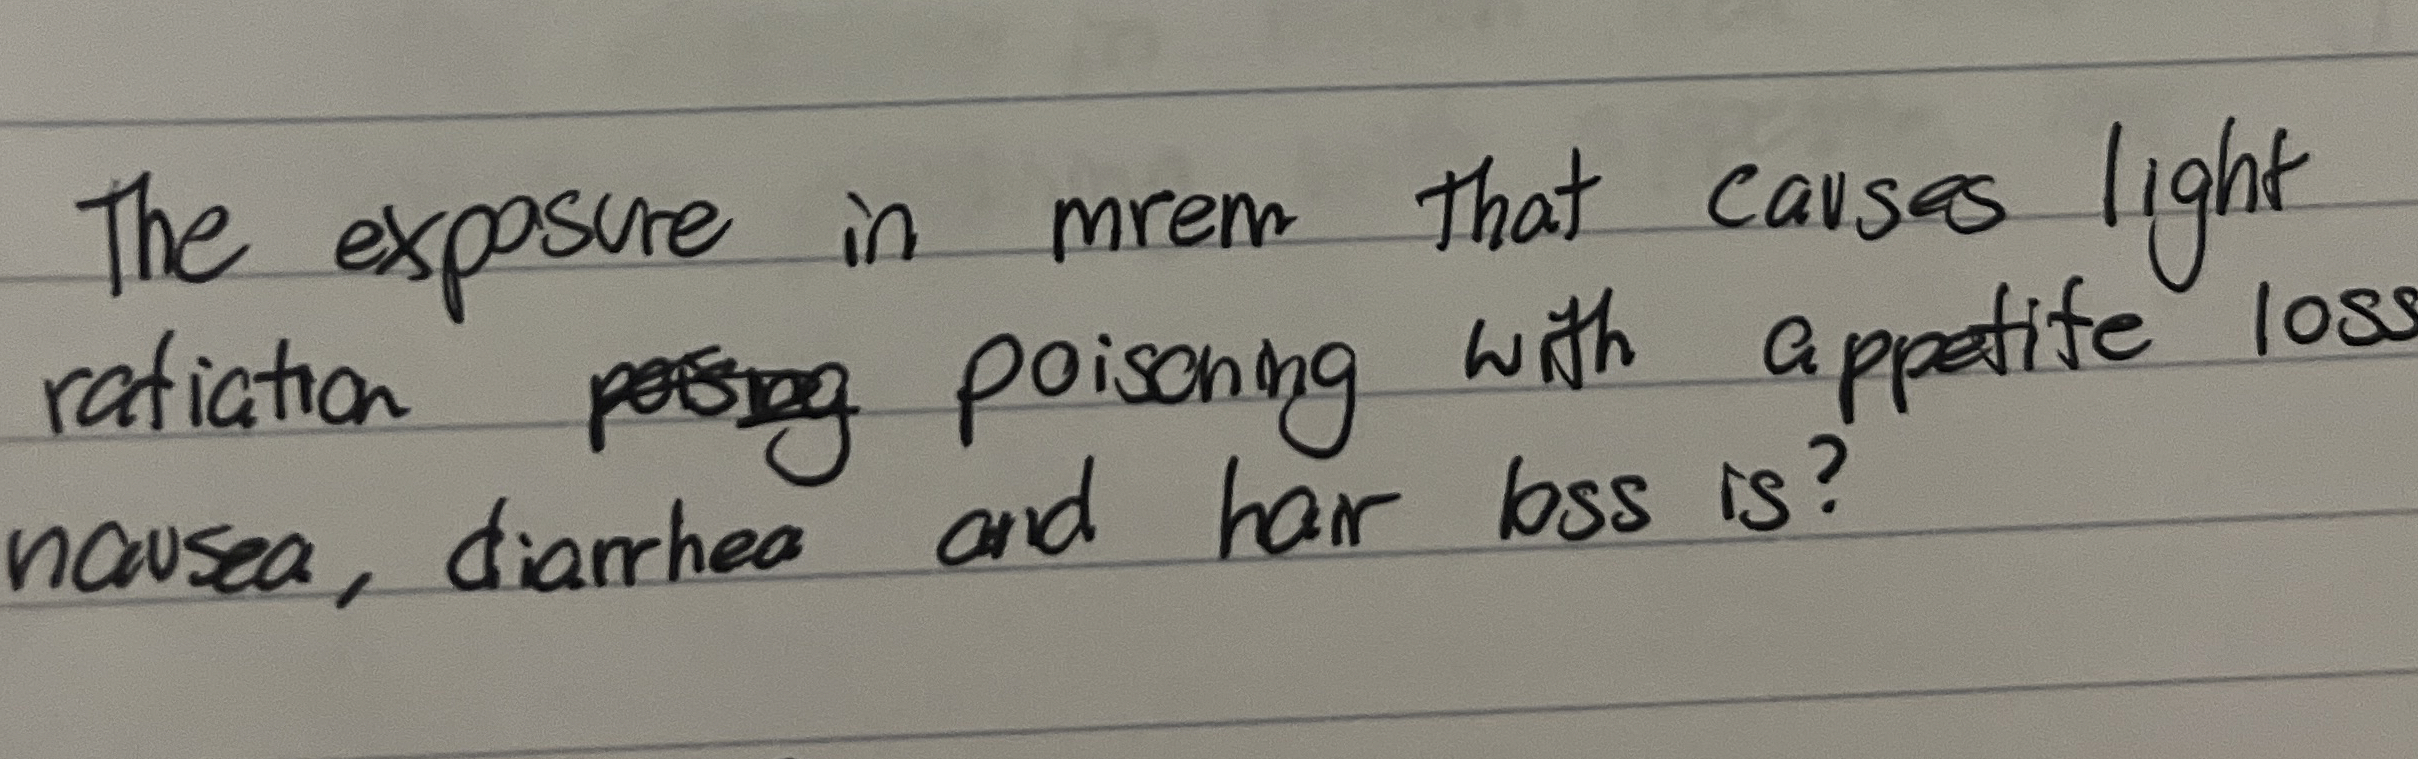 The exposure in mrem that causes light
ratiation poisoning with appetite loss
nausea, diarrhea and hair loss is?